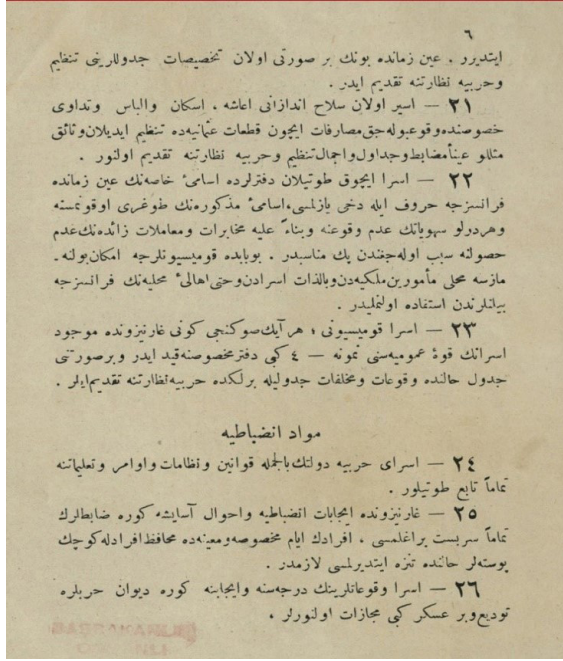 ٦
ايتديرر . عين زمانده بونك بر صورتى اولان تخصيصات جدوللرينى تنظيم
وحربيه نظارتنه تقديم ايدر .
٢١ — اسير اولان سلاح اندازانى اعاشه ، اسكان والباس وتداوى
خصوصنده وقوعبوله‌جق مصارفات ايچون قطعات عثمانيه‌ده تنظيم ايديلان وثائق
مثللو عيناً مضابط وجداول واجمال تنظيم وحربيه نظارتنه تقديم اولنور .
٢٢ — اسرا ايچون طوتيلان دفترلرده اسامئ خاصه‌نك عين زمانده
فرانسزجه حروف ايله دخى يازلمسى، اسامئ مذكوره‌نك طوغرى اوقونمسنه
وهردرلو سهوياتك عدم وقوعنه وبناءً عليه مخابرات ومعاملات زائده‌نك عدم
حصولنه سبب اوله‌جغندن پك مناسبدر . بوبابده قوميسيونلرجه امكان بولنه‌-
مازسه محلى مأمورين ملكيه‌دن وبالذات اسرادن وحتى اهالئ محليه‌نك فرانسزجه
بيلنلرندن استفاده اولنمليدر .
٢٣ — اسرا قوميسيونى ؛ هر آيك صوكنجى كونى غارنيزونده موجود
اسرانك قوۀ عموميه‌سنى نمونه — ٤ كبى دفتر مخصوصنه قيد ايدر وبر صورتنى
جدول حالنده وقوعات ومخلفات جدوليله برلكده حربيه نظارتنه تقديم ايلر .
مواد انضباطيه
٢٤ — اسراى حربيه دولتك بالجمله قوانين ونظامات واوامر وتعليماتنه
تماماً تابع طوتيلور .
٢٥ — غارنيزونده ايجابات انضباطيه واحوال آسايشه كوره ضابطلرك
تماماً سربست براغلمسى ، افرادك ايام مخصوصه ومعينه‌ده محافظ افرادله كوچك
پوسته‌لر حالنده تنزه ايتديرلمسى لازمدر .
٢٦ — اسرا وقوعاتلرينك درجه‌سنه وايجابنه كوره ديوان حربلره
توديع وبر عسكر كبى مجازات اولنورلر .